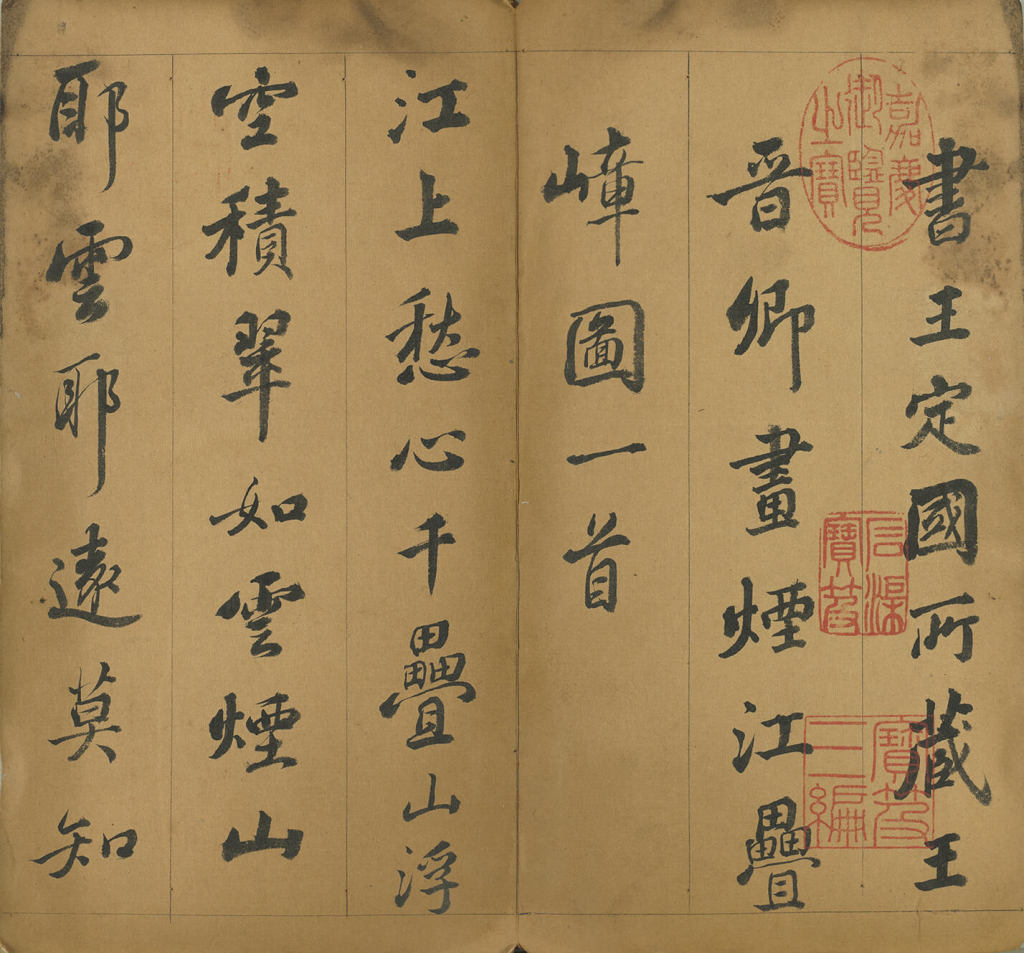 書王定國所藏王
晋卿畫煙江疊
嶂圖一首
江上愁心千疊山浮
空積翠如雲煙山
耶雲耶遠莫知
嘉慶御覽之寶
石渠寶笈
寶笈三編